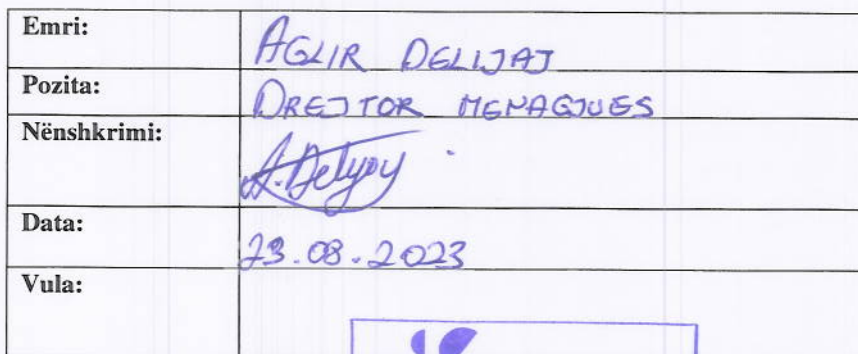 Emri: AGLIR DELIJAJ
Pozita: DREJTOR MENAGJUES
Nënshkrimi: A.Delijaj
Data: 23.08.2023
Vula: